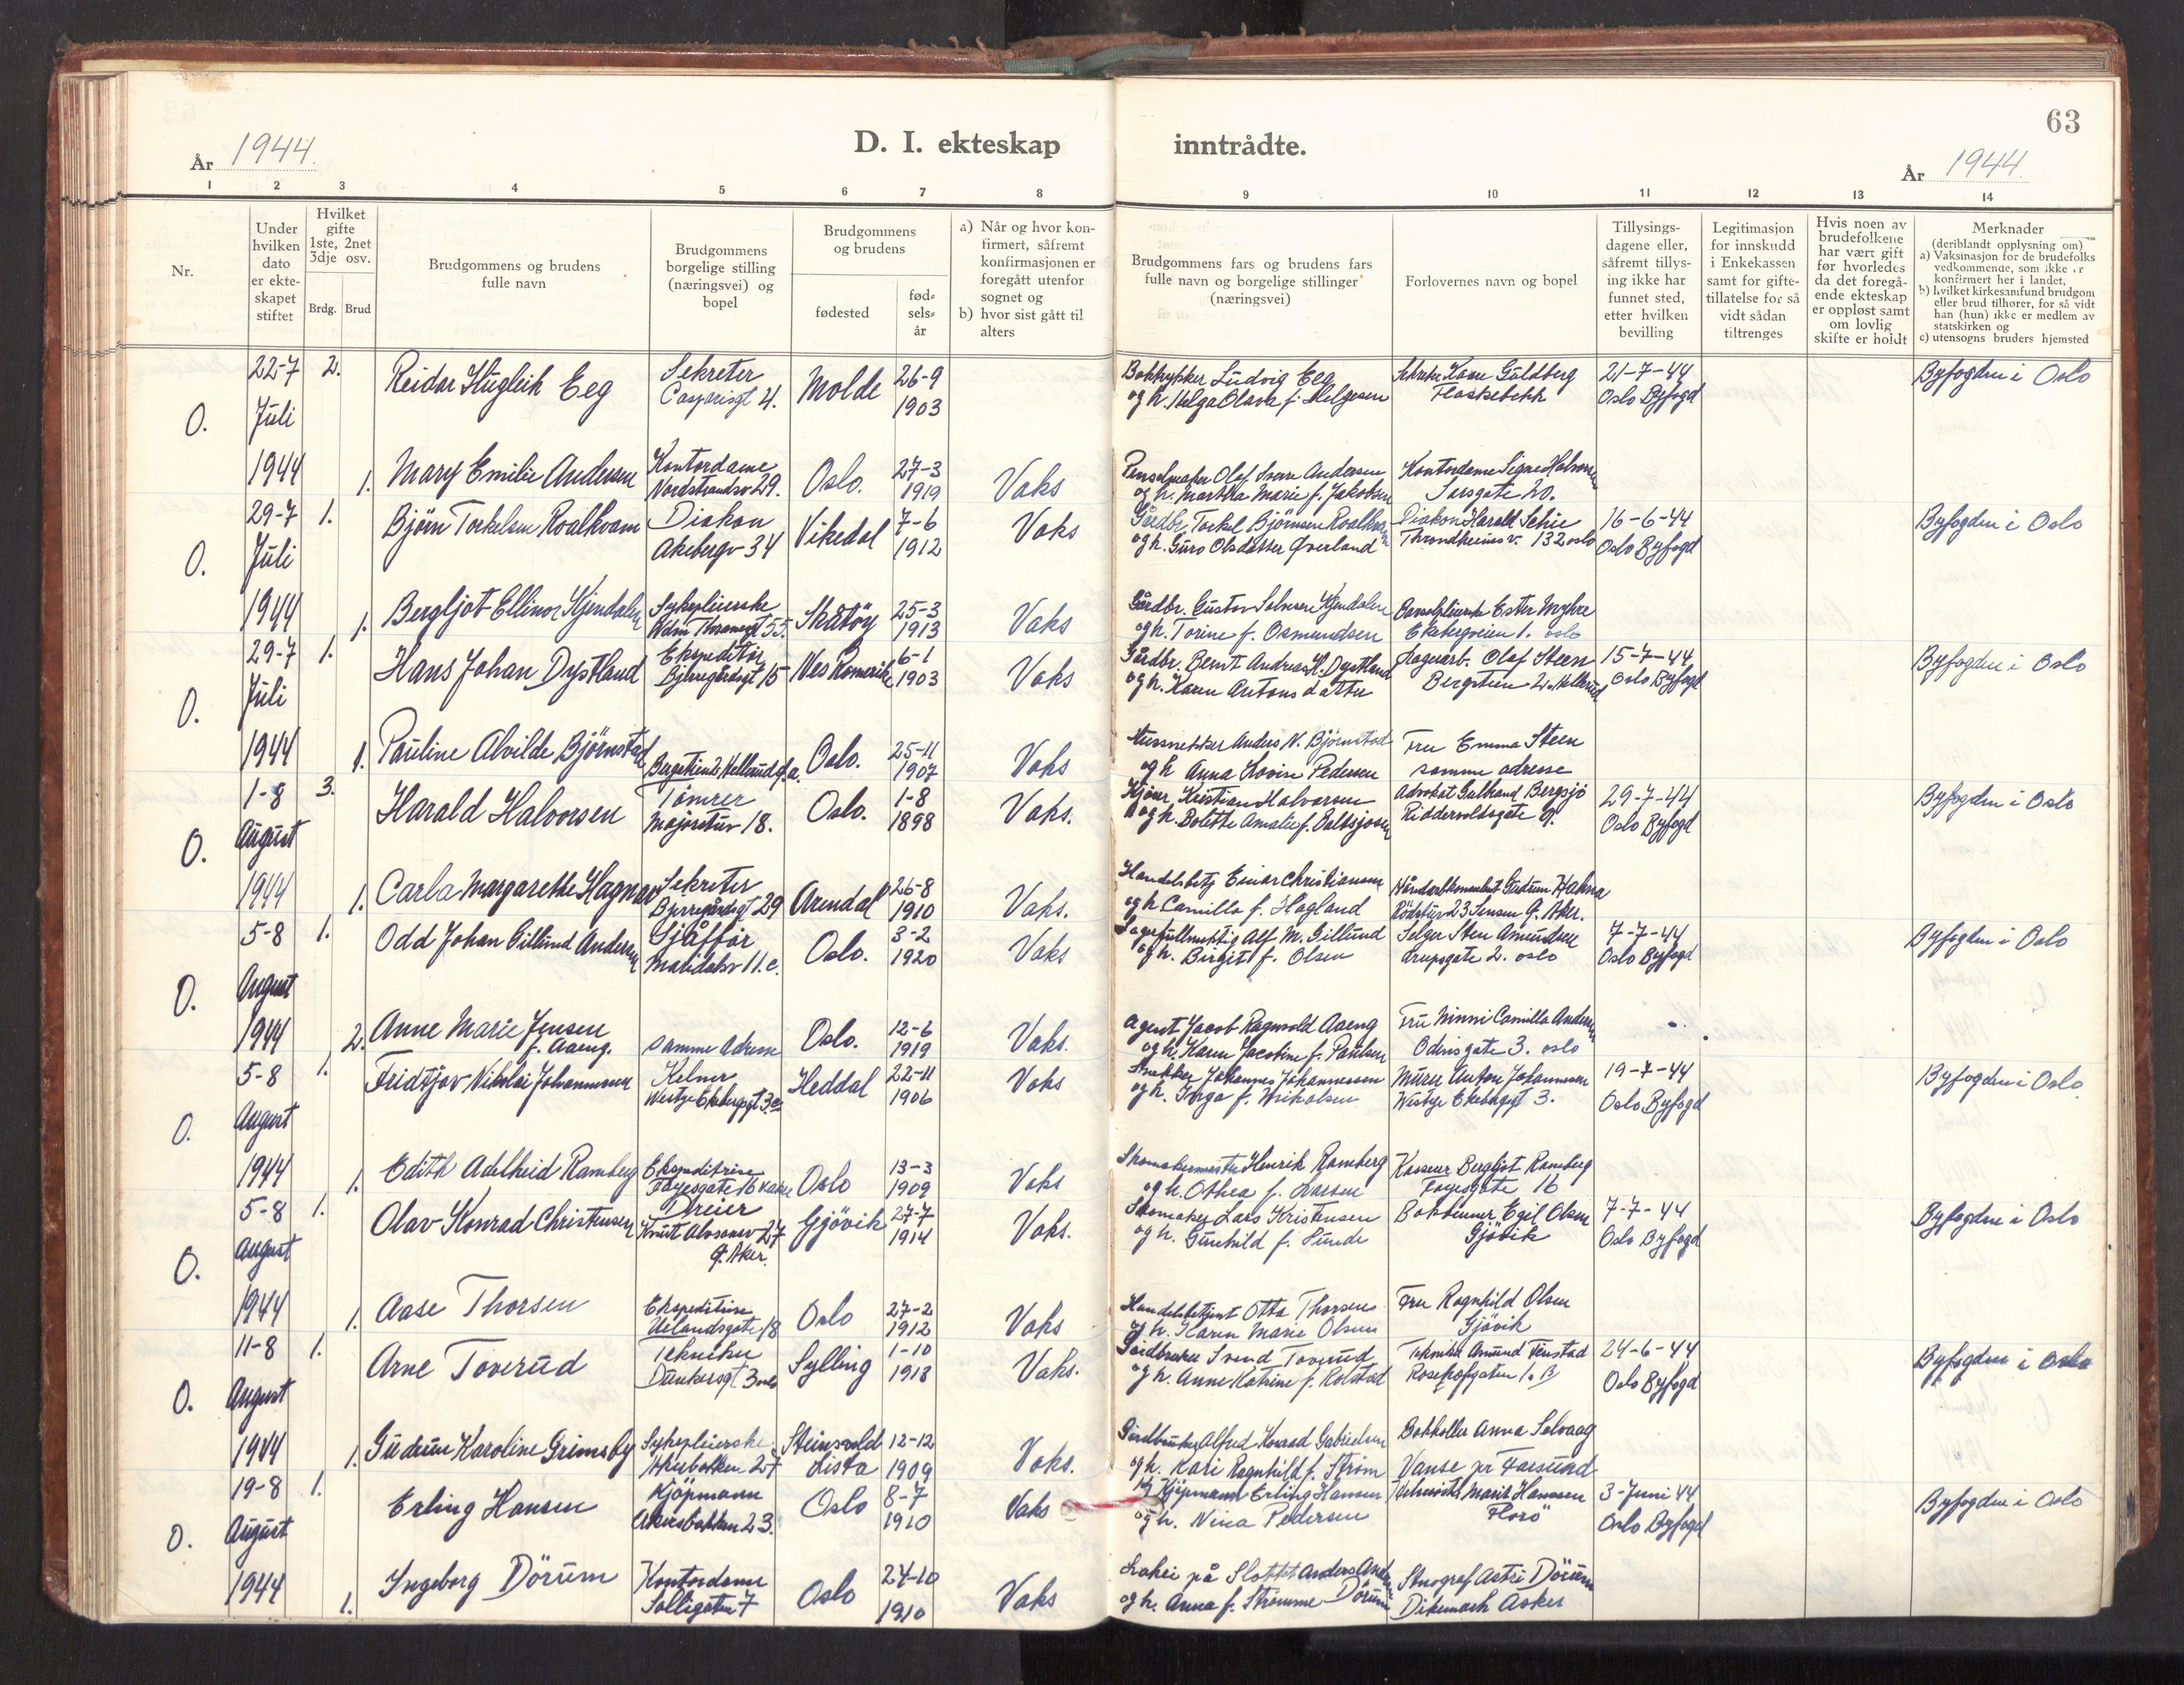 63
År 1944.
D. I. ekteskap inntrådte.
År 1944.
1 2 3 4 5 6 7 8 9 10 11 12 13 14
Nr.
Under hvilken dato er ekteskapet stiftet
Hvilket gifte 1ste, 2net 3dje osv.
Brdg. Brud
Brudgommens og brudens fulle navn
Brudgommens borgelige stilling (næringsvei) og bopel
Brudgommens og brudens
fødested
fødselsår
a) Når og hvor konfirmert, såfremt konfirmasjonen er foregått utenfor sognet og
b) hvor sist gått til alters
Brudgommens fars og brudens fars fulle navn og borgelige stillinger (næringsvei)
Forlovernes navn og bopel
Tillysingsdagene eller, såfremt tillysing ikke har funnet sted, etter hvilken bevilling
Legitimasjon for innskudd i Enkekassen samt for giftetillatelse for så vidt sådan tiltrenges
Hvis noen av brudefolkene har vært gift før hvorledes da det foregående ekteskap er oppløst samt om lovlig skifte er holdt
Merknader
(deriblandt opplysning om)
a) Vaksinasjon for de brudefolks vedkommende, som ikke er konfirmert her i landet,
b) hvilket kirkesamfund brudgom eller brud tilhører, for så vidt han (hun) ikke er medlem av statskirken og
c) utensogns bruders hjemsted
O. 22-7 Juli 1944
2. Reidar Eeg Sekretær Casparisgt 4. Molde 26-9 1903
Ludvig Eeg og h. Helga Olava f. Helgesen
Guldberg
21-7-44 Oslo Byfogd
Byfogden i Oslo
1. Mary Emilie Andersen Kontordame Nordstrandsv 29. Oslo. 27-3 1919 Vaks
Olaf Andersen og h. Martha Marie f. Jakobsen
Kontordame Signe Halvorsen Sarsgate 20.
O. 29-7 Juli 1944
1. Bjørn Torkelsen Roalkvam Diakon Akebergv 34 Vikedal 7-6 1912 Vaks
Gårdbr. Torkel Bjørnsen Roalkvam og h. Guro Olsdatter Øverland
Diakon Harald Schie Throndheimsv. 132 oslo
16-6-44 Oslo Byfogd
Byfogden i Oslo
1. Bergljot Ellinor Kjendalen Sykepleierske 55. Skåtøy 25-3 1913 Vaks
Gårdbr. Gustav Kjendalen og h. Torine f. Osmundsen
Ester Myhre Ekebergveien 1. oslo
O. 29-7 Juli 1944
1. Hans Johan Dystland Ekspeditør Bjerregårdsgt 15 Nes Romerike 6-1 1903 Vaks
Gårdbr. Bernt Andreas H. Dystland og h. Karen Antonsdatter
Lagerarb. Olaf Steen Bergstien 2. Hellerud
15-7-44 Oslo Byfogd
Byfogden i Oslo
1. Pauline Alvilde Bjørnstad Bergstien 2 Hellerud Oslo. 25-11 1907 Vaks
Anders N. Bjørnstad og h Anna Lovise Pedersen
Fru Emma Steen samme adresse
O. 1-8 August 1944
3. Harald Halvorsen Tømrer Majorstuv 18. Oslo. 1-8 1898 Vaks.
Kristian Halvorsen og h. Bolette Amalie f.
Advokat Gulbrand Bergsjø Riddervoldsgate 9.
29-7-44 Oslo Byfogd
Byfogden i Oslo
1. Carla Margarethe Hagman Sekretær Bjerregårdsgt 29 Arendal 26-8 1910 Vaks.
Einar Christiansen og h Camilla f. Hagland
Gudrun
O. 5-8 August 1944
1. Odd Johan Gillund Andersen Sjåffør Maridalsv 11.c. Oslo. 3-2 1920 Vaks
Alf M. Gillund og h. Birgit f. Olsen
Selger Sten Amundsen Arupsgate 2. oslo
7-7-44 Oslo Byfogd
Byfogden i Oslo
2. Anne Marie Jensen f. Aaeng. Samme Adresse Oslo. 12-6 1919 Vaks.
Agent Jacob Ragnvald Aaeng og h. Karen Jacobine f. Paulsen
Fru Minni Camilla Andersen Odinsgate 3. oslo
O. 5-8 August 1944
1. Fridtjov Nikolai Johannessen Kelner Heddal 22-11 1906 Vaks
Snekker Johannes Johannessen og h. Inga f. Nikolsen
Murer Anton Johannessen 3.
19-7-44 Oslo Byfogd
Byfogden i Oslo
1. Edith Adelheid Ramberg Ekspeditrise Fayesgate 16 Oslo 13-3 1909 Vaks
Skomakermester Henrik Ramberg og h. Othea f. Larsen
Kasserer Bergljot Ramberg Fayesgate 16
O. 5-8 August 1944
1. Olav Konrad Christensen Dreier Knut Alvsonsv 27 Ø. Aker. Gjøvik 27-7 1914 Vaks.
Skomaker Lars Kristensen og h. Gunhild f. Sunde
Bokbinner Egil Olsen Gjøvik
7-7-44 Oslo Byfogd
Byfogden i Oslo
1. Aase Thorsen Ekspeditrise Uelandsgate 18 Oslo 27-2 1912 Vaks
Handelsbetjent Otto Thorsen og h. Karen Marie Olsen
Fru Ragnhild Olsen Gjøvik
O. 11-8 August 1944
1. Arne Toverud Tekniker Daukersgt 3 oslo Sylling 1-10 1918 Vaks.
Gårdbruker Svend Toverud og h. Anne Katrine f. Rolstad
Tekniker Amund Finstad Rosenhofgaten 1. B
24-6-44 Oslo Byfogd
Byfogden i oslo
1. Gudrun Karoline Grimsby Sykepleierske. 27 Lista 12-12 1909 Vaks.
Gårdbruker Alfred Konrad Gabrielsen og h. Kari Ragnhild f. Strøm
Bokholder Anna Solvaag Vanse pr Farsund
O. 19-8 August 1944
1. Erling Hansen Kjøpmann Akersbakken 23. Oslo 8-7 1910 Vaks
Kjøpmann Erling Hansen og h. Nina Pedersen
Marit Hanssen Florø
3-Juni 44 Oslo Byfogd
Byfogden i Oslo
1. Ingeborg Dørum Kontordame Solligaten 7 Oslo 24-10 1910 Vaks
Lakei på Slottet Anders Dørum og h. Anna f. Strømme
Stenograf Astri Dørum Dikemark Asker